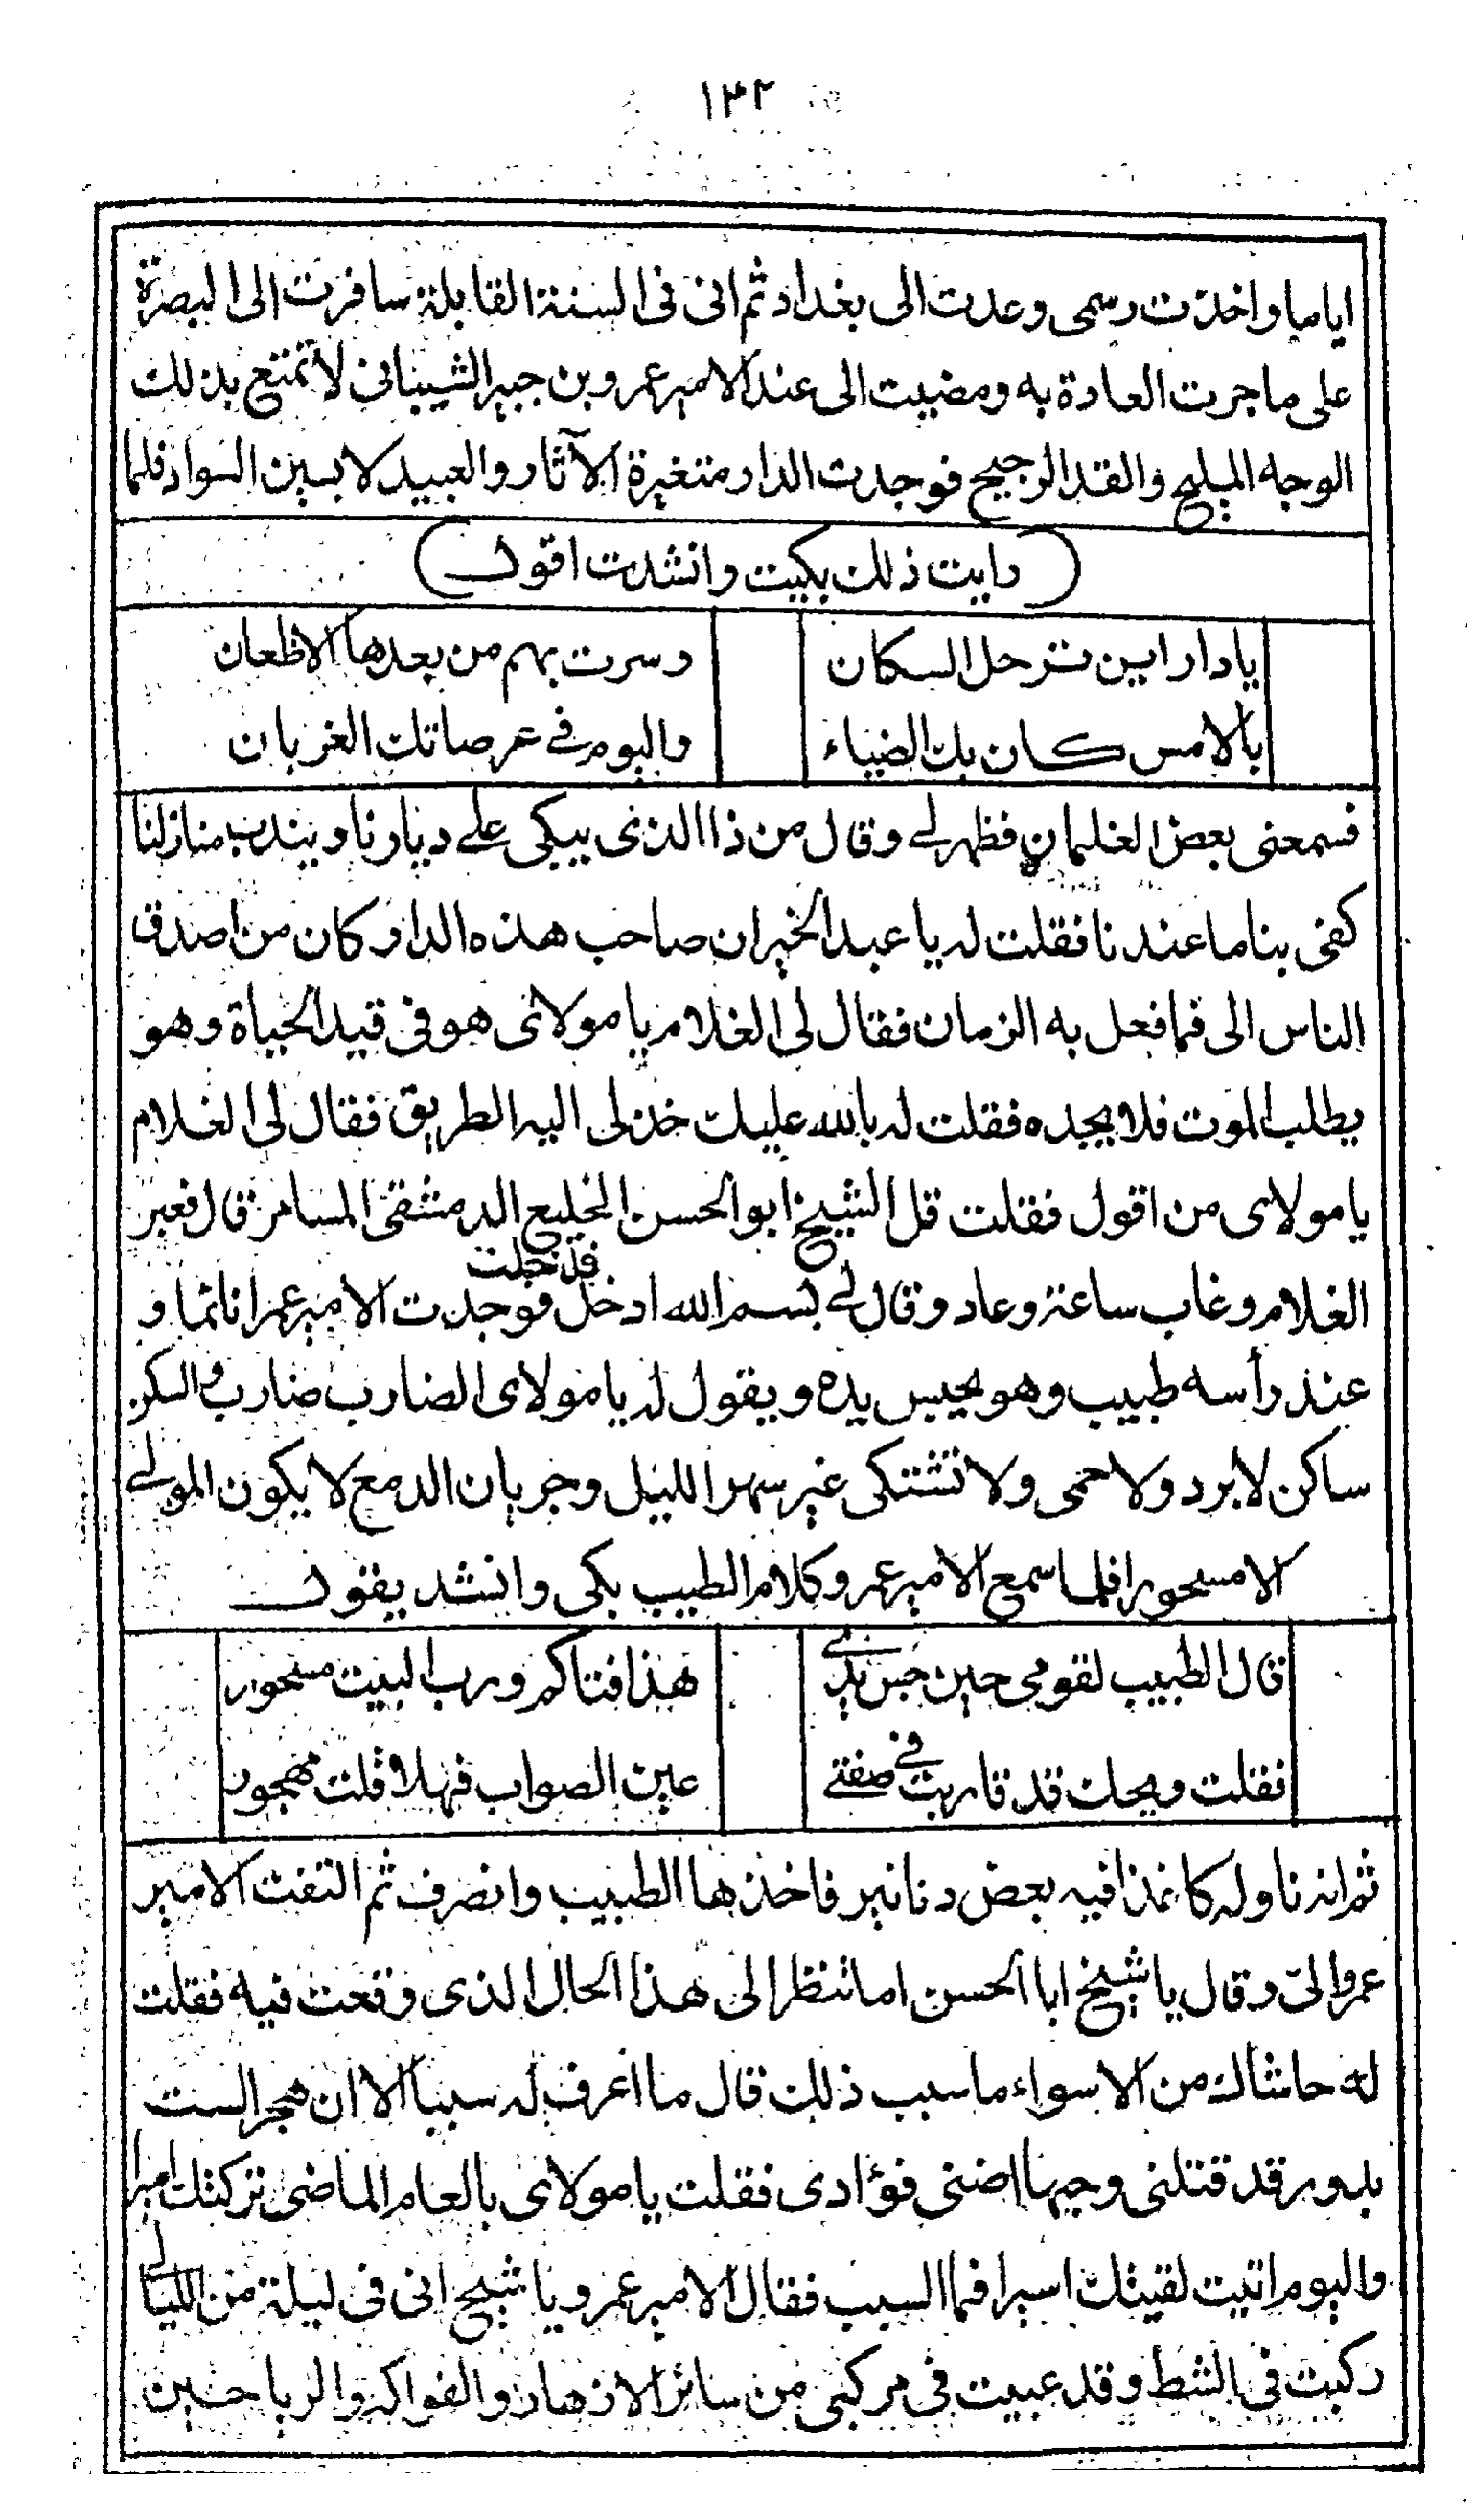 ١٣٢
اياما واخذت رسمى وعدت الى بغداد ثم انى فى السنة القابلة سافرت الى البصرة
على ما جرت العادة به ومضيت الى عند الامير عمرو بن جبير الشيبانى لاتمتع بذلك
الوجه المليح والقد الرجيح فوجدت الدار متغيرة الآثار والعبيد لابسين السواد فلما
(رايت ذلك بكيت وانشدت اقول)
يا دار اين ترحل السكان وسرت بهم من بعدها الاظعان
بالامس كان بك الضياء واليوم فى عرصاتك الغربان
فسمعنى بعض الغلمان فظهر لى وقال من ذا الذى يبكى على ديارنا ويندب منازلنا
كفى بنا ما عندنا فقلت له يا عبد الخير ان صاحب هذه الدار كان من اصدق
الناس الى فما فعل به الزمان فقال لى الغلام يا مولاى هو فى قيد الحياة وهو
يطلب الموت فلا يجده فقلت له بالله عليك خذ لى اليه الطريق فقال لى الغلام
يا مولاى من اقول فقلت قل الشيخ ابو الحسن الخليع الدمشقى المسامر قال فعبر
الغلام وغاب ساعة وعاد وقال لى بسم الله ادخل فدخلت فوجدت الامير عمرا نائما و
عند رأسه طبيب وهو يجس يده ويقول له يا مولاى الضارب ضارب والسكن
ساكن لا برد ولا حمى ولا تشتكى غير سهر الليل وجريان الدمع لا يكون المولى
الا مسحورا فلما سمع الامير عمرو كلام الطبيب بكى وانشد يقول
قال الطبيب لقومى حين جس يدى هذا فتاكم ورب البيت مسحور
فقلت ويحك قد قاربت فى صفتى عين الصواب فهلا قلت مهجور
ثم انه ناوله كاغذا فيه بعض دنانير فاخذها الطبيب وانصرف ثم التفت الامير
عمرو الى وقال يا شيخ ابا الحسن اما تنظر الى هذا الحال الذى وقعت فيه فقلت
له حاشاك من الاسواء ما سبب ذلك قال ما اعرف له سببا الا ان هجر الست
بدور قد قتلنى وحبها اضنى فؤادى فقلت يا مولاى بالعام الماضى تركتك اميرا
واليوم اتيت لقيتك اسيرا فما السبب فقال الامير عمرو يا شيخ انى فى ليلة من الليالى
ركبت فى الشط وقد عبيت فى مركبى من سائر الازهار والفواكه والرياحين